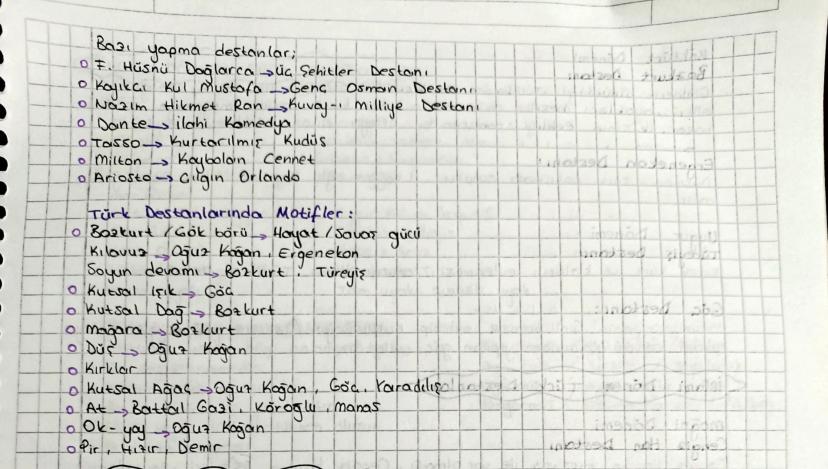 Bazı yapma destanlar;
o F. Hüsnü Dağlarca → Üç Şehitler Destanı
o Kayıkcı Kul Mustafa → Genç Osman Destanı
o Nazım Hikmet Ran → Kuvay-ı Milliye Destanı
o Dante → ilahi Komedya
o Tasso → Kurtarılmış Kudüs
o Milton → Kaybolan Cennet
o Ariosto → Çılgın Orlando
Türk Destanlarında Motifler:
o Bozkurt / Gök börü → Hayat / Savaş gücü
Kılavuz → Oğuz Kağan, Ergenekon
Soyun devamı → Bozkurt, Türeyiş
o Kutsal Işık → Göç
o Kutsal Dağ → Bozkurt
o Mağara → Bozkurt
o Düş → Oğuz Kağan
o Kırklar
o Kutsal Ağaç → Oğuz Kağan, Göç, Yaradılış
o At → Battal Gazi, Köroğlu, Manas
o Ok-yay → Oğuz Kağan
o Pir, Hızır, Demir